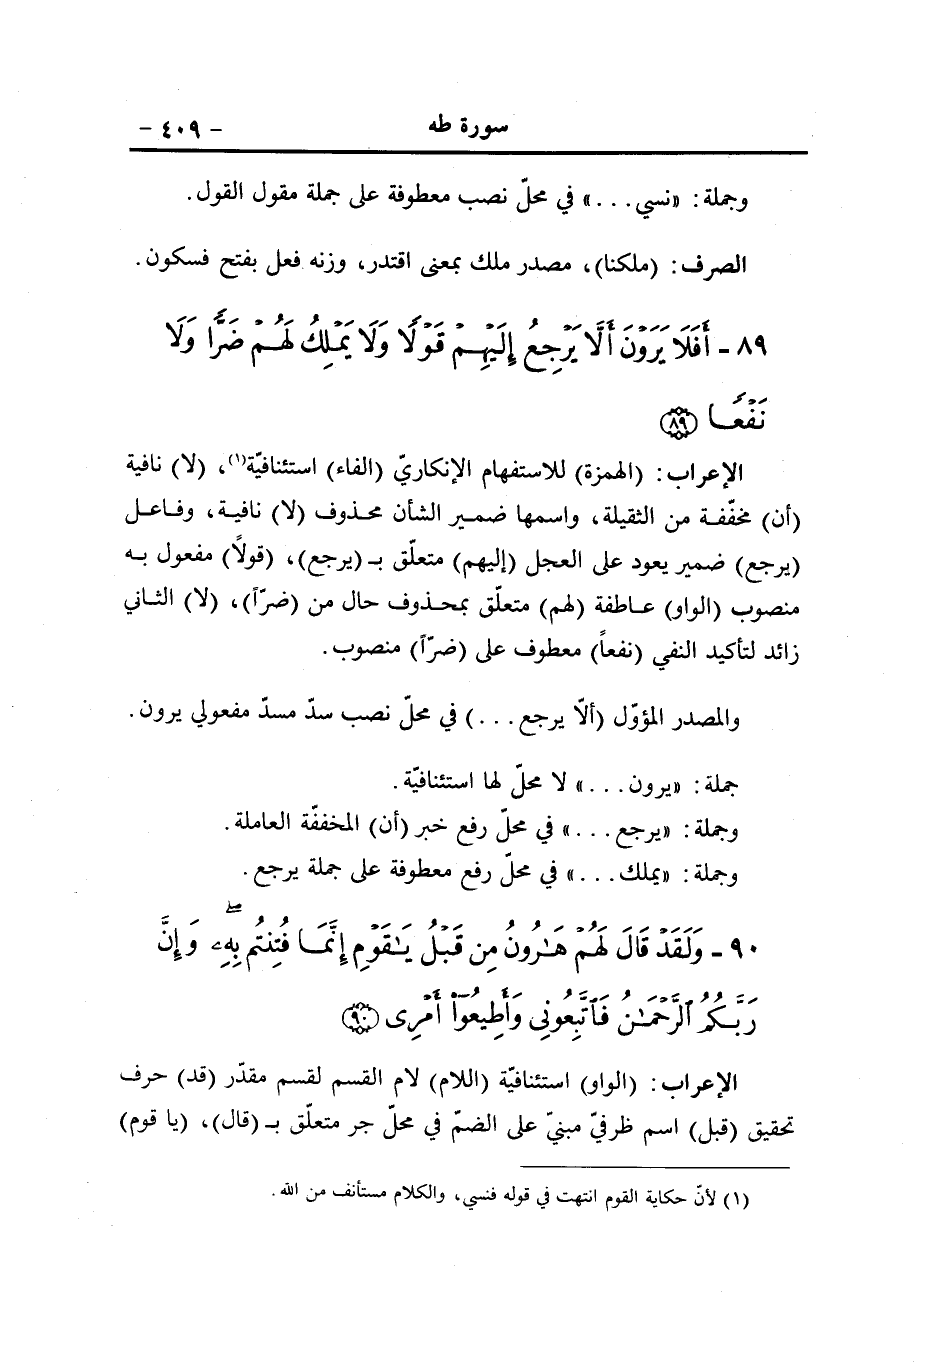 سورة طه - ٤٠٩ -
وجملة: «نسي...» في محلّ نصب معطوفة على جملة مقول القول.
الصرف: (ملكنا)، مصدر ملك بمعنى اقتدر، وزنه فعل بفتح فسكون.
٨٩ - أَفَلَا يَرَوْنَ أَلَّا يَرْجِعُ إِلَيْهِمْ قَوْلًا وَلَا يَمْلِكُ لَهُمْ ضَرًّا وَلَا
نَفْعًا ﴿٨٩﴾
الإعراب: (الهمزة) للاستفهام الإنكاريّ (الفاء) استئنافيّة(١)، (لا) نافية
(أن) مخفّفة من الثقيلة، واسمها ضمير الشأن محذوف (لا) نافية، وفاعل
(يرجع) ضمير يعود على العجل (إليهم) متعلّق بـ (يرجع)، (قولاً) مفعول به
منصوب (الواو) عاطفة (لهم) متعلّق بمحذوف حال من (ضرّاً)، (لا) الثاني
زائد لتأكيد النفي (نفعاً) معطوف على (ضرّاً) منصوب.
والمصدر المؤوّل (ألّا يرجع...) في محلّ نصب سدّ مسدّ مفعولي يرون.
جملة: «يرون...» لا محلّ لها استئنافيّة.
وجملة: «يرجع...» في محلّ رفع خبر (أن) المخففّة العاملة.
وجملة: «يملك...» في محلّ رفع معطوفة على جملة يرجع.
٩٠ - وَلَقَدْ قَالَ لَهُمْ هَٰرُونُ مِن قَبْلُ يَٰقَوْمِ إِنَّمَا فُتِنتُم بِهِۦ ۖ وَإِنَّ
رَبَّكُمُ ٱلرَّحْمَٰنُ فَٱتَّبِعُونِى وَأَطِيعُوٓا۟ أَمْرِى ﴿٩٠﴾
الإعراب: (الواو) استئنافيّة (اللام) لام القسم لقسم مقدّر (قد) حرف
تحقيق (قبل) اسم ظرفيّ مبنيّ على الضمّ في محلّ جر متعلّق بـ (قال)، (يا قوم)
(١) لأنّ حكاية القوم انتهت في قوله فنسي، والكلام مستأنف من الله.